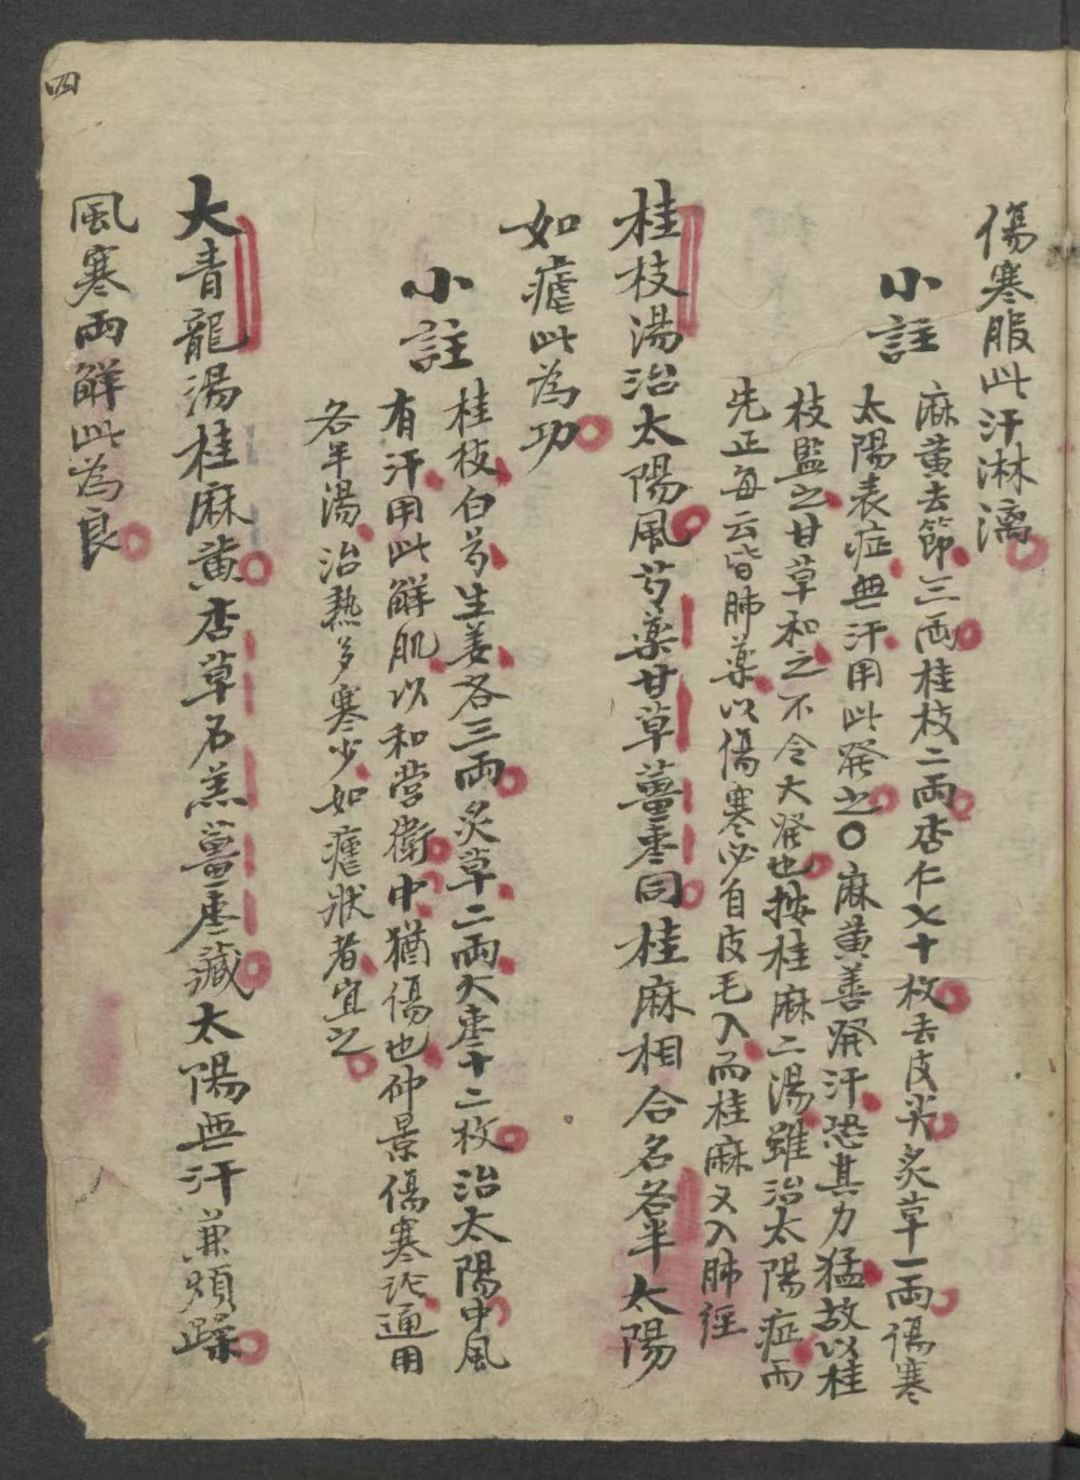 傷寒服此汗淋漓
小註
麻黄去節三兩桂枝二兩杏仁七十枚去皮尖炙草一兩傷寒
太陽表症無汗用此發之〇麻黄善發汗恐其力猛故以桂
枝監之甘草和之不令大發也按桂麻二湯雖治太陽症而
先正每云皆肺藥以傷寒必自皮毛入而桂麻又入肺徑
桂枝湯治太陽風芍藥甘草薑棗同桂麻相合名各半太陽
如瘧此為功
小註
桂枝白芍生姜各三兩炙草二兩大棗十二枚治太陽中風
有汗用此解肌以和营衛中猶傷也仲景傷寒论通用
各半湯治熱多寒少如瘧狀者宜之
大青龍湯桂麻黄杏草石羔薑棗藏太陽無汗兼煩躁
風寒兩解此為良
四